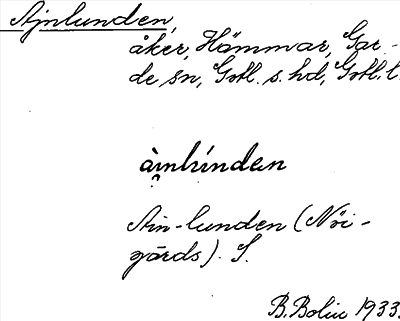 Ajnlunden,
åker, Hammar, Gar-
de sn, Gotl. s. hd, Gotl. l.
àinlúnden
Ain-lunden (Nöi-
gårds). S.
B. Bolin 1933.